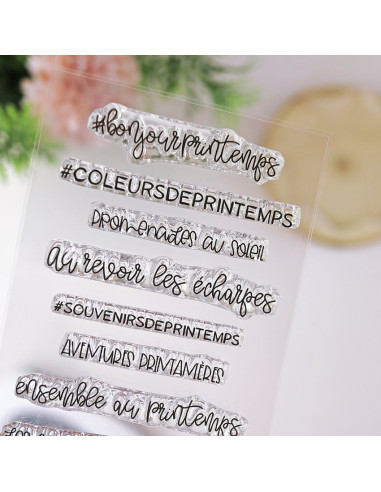 #bonjourprintemps
#COLEURSDEPRINTEMPS
PROMENADES AU SOLEIL
au revoir les écharpes
#SOUVENIRSDEPRINTEMPS
AVENTURES PRINTANIÈRES
ensemble au printemps